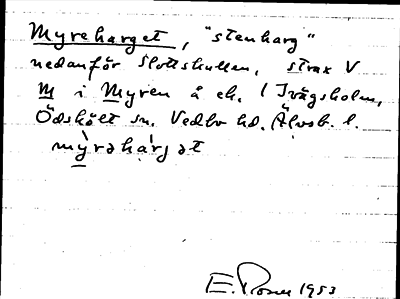 Myreharget, "stenharg"
nedanför Slottskullen, strax V
M i Myren å ek. 1 Ivägsholm,
Ödskölt sn. Vedbo hd. Älvsb. l.
myrahárjat
E. Rosell 1953